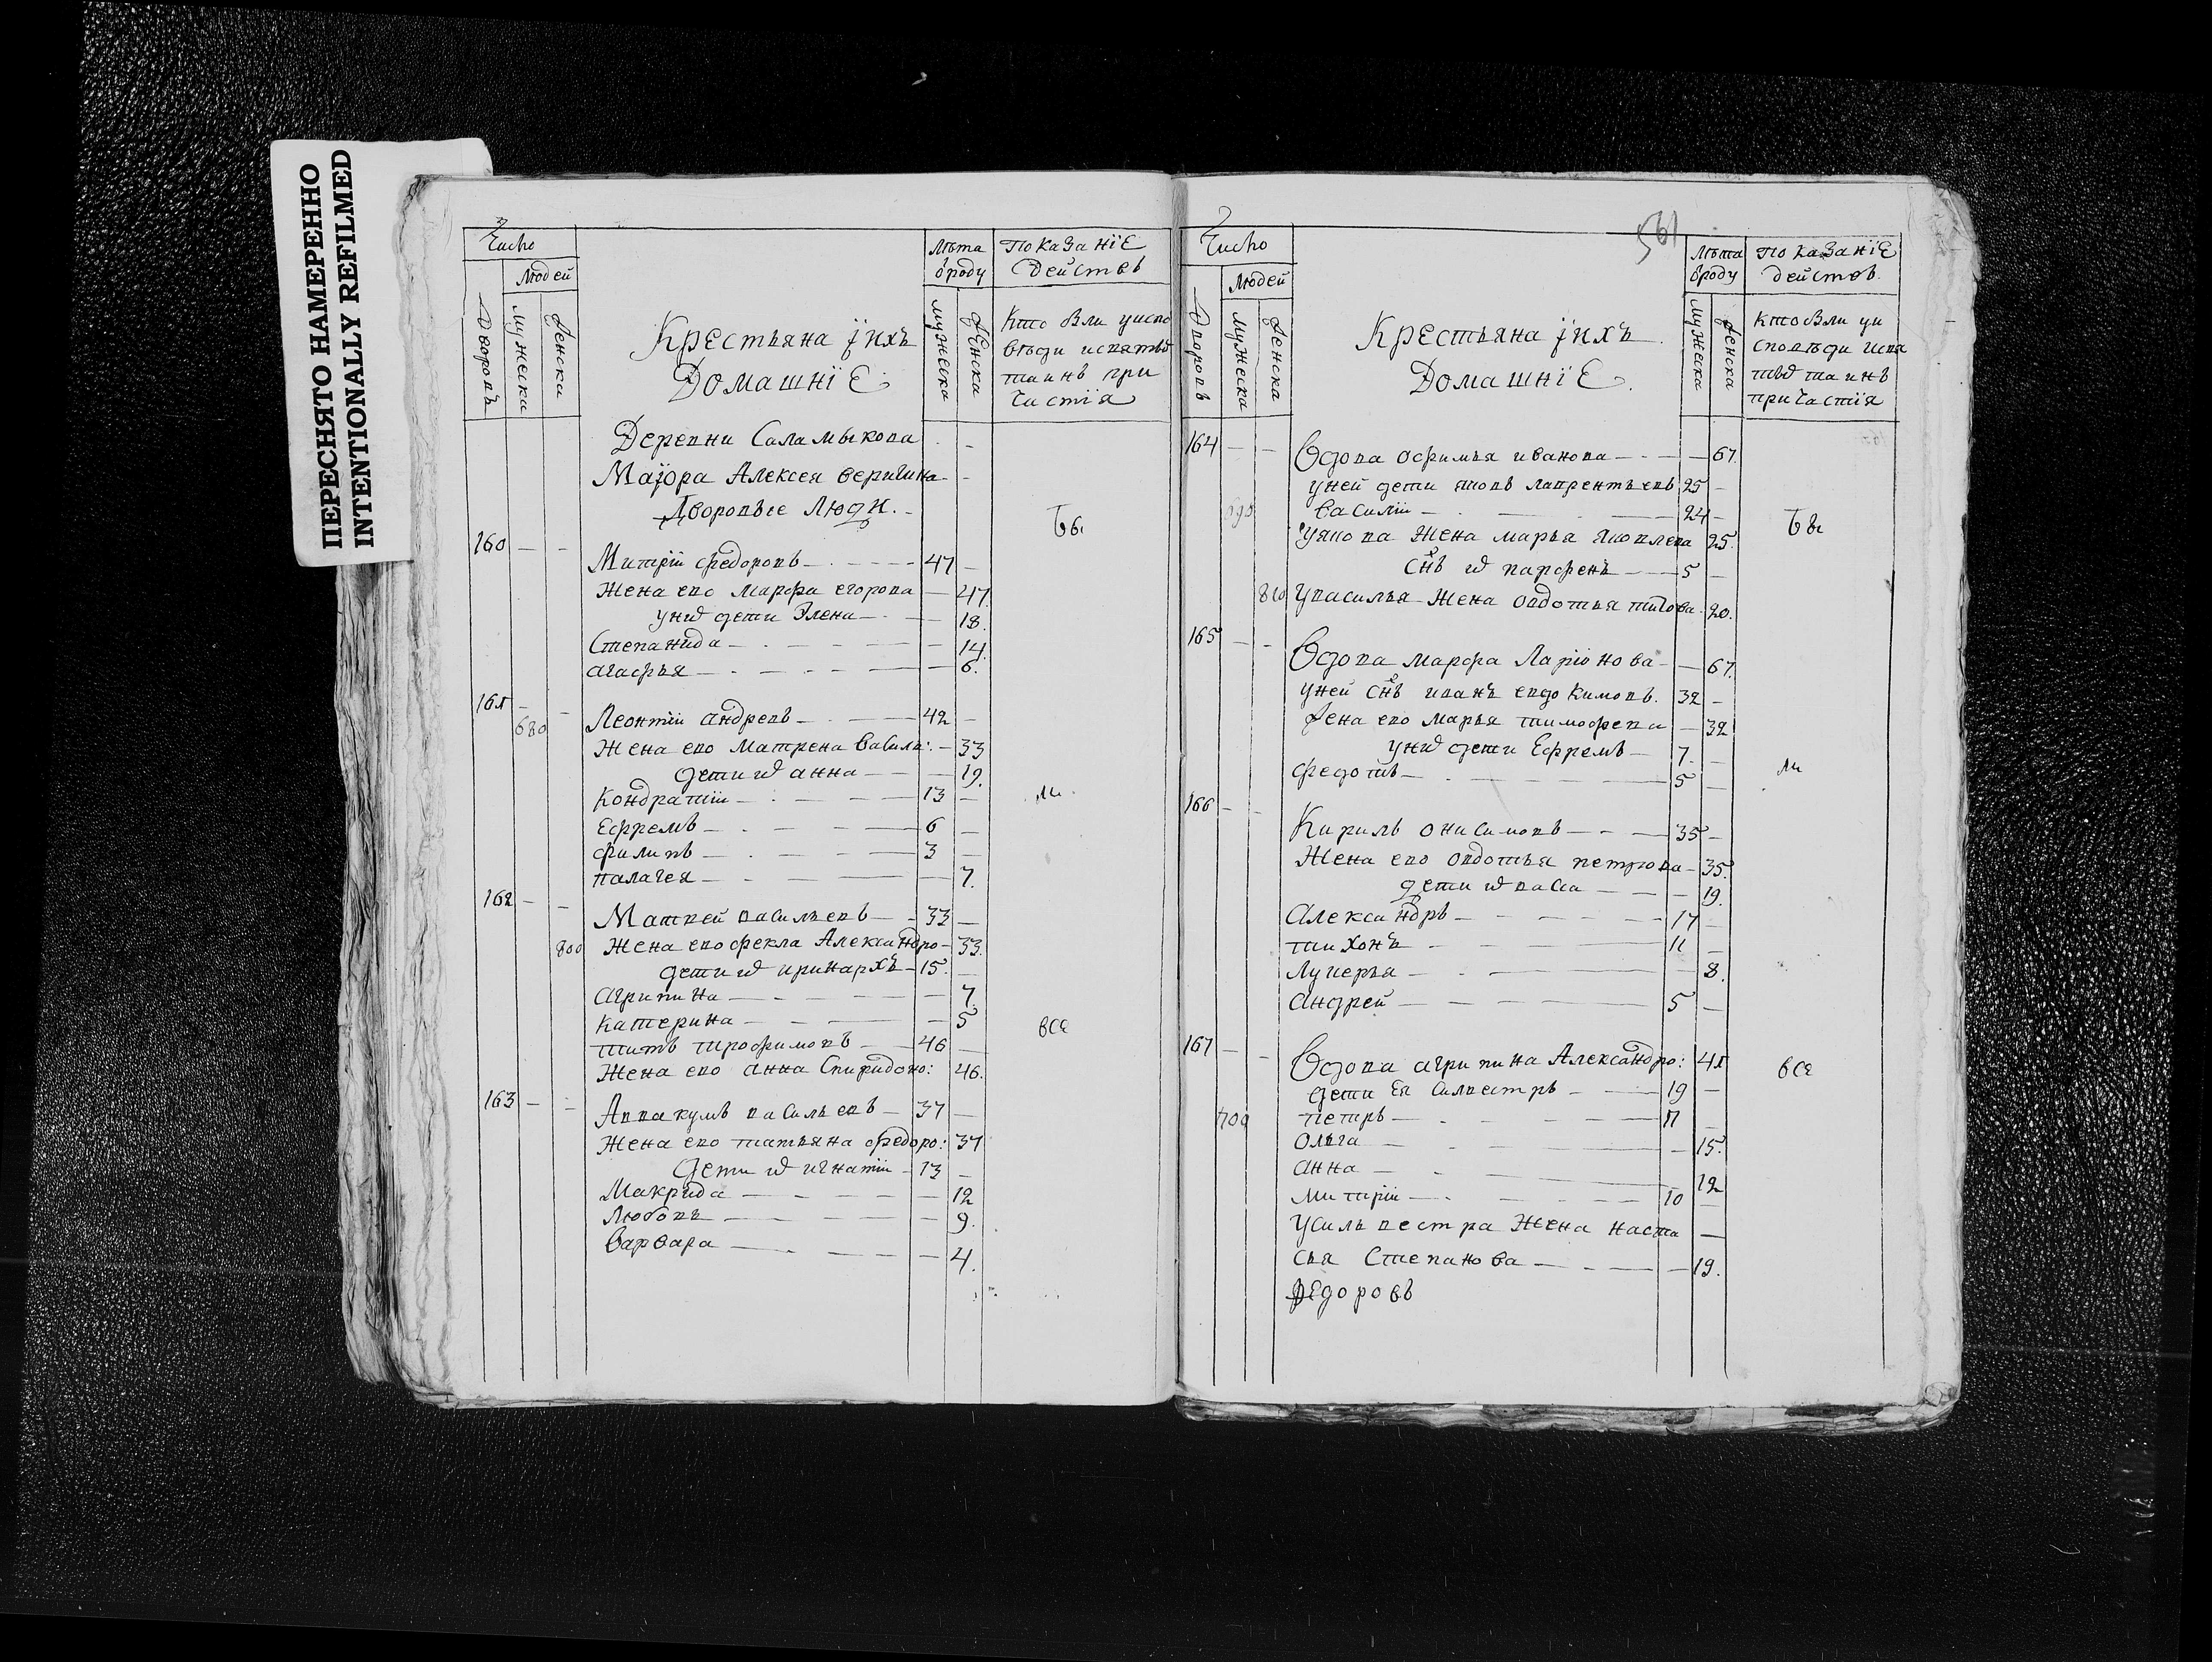 ПЕРЕСНЯТО НАМЕРЕННО
INTENTIONALLY REFILMED
Число
Людей
Дворовъ
Мужеска
Женска
Крестьяна іихъ
Домашніе
Лѣта
вроду
Мужеска
Женска
Показаніе
Действъ
Кто вли уиспо
вѣди испятыѿ
таинъ при
частія
Деревни Саламыкова
Маіора Алексея веригина
Дворовые Люди
160 Митрій федоровъ 47
Жена ево марфа егорова 47
униѿ дети Элена 18
Степанида 14
агафья 6
161 Леонтіи андревъ 42
680
Жена ево матрена василь: 33
дети иѿ анна 19
Кондратіи 13
Ефремъ 6
филипъ 3
палагея 7
162 Матвей васильевъ 33
800 Жена ево фекла Александро 33
дети иѿ иринархъ 15
агрипина 7
катерина 5
титъ трофимовъ 46
Жена ево анна Спиридоно: 46
163 Аввакумъ васильевъ 37
Жена ево татьяна федоро: 37
дети иѿ игнатіи 13
Макрида 12
Любовь 9
варвара 4
Бы
ли
все
561
Число
Людей
Дворовъ
Мужеска
Женска
Крестьяна іихъ
Домашніе
Лѣта
вроду
Мужеска
Женска
Показаніе
действъ
кто вли уи
сповѣди испя
тыѿ таинъ
причастія
164 Вдова офимья иванова 67
уней дети яковъ лаврентьевъ 25
690 василіи 24
уякова Жена марья яковлева 25
снъ иѿ парфенъ 5
810 увасилья Жена овдотья титова 20
165 Вдова марфа Ларіонова 67
уней снъ иванъ евдокимовъ 32
Жена ево марья тимофева 32
униѿ дети Ефремъ 7
федотъ 5
166 Кирилъ онисимовъ 35
Жена ево овдотья петрова 35
дети иѿ васа 19
Александръ 17
тихонъ 11
Лукерья 8
андрей 5
167 Вдова агрипина Александро: 41
дети Ея Силвестръ 19
700 петръ 17
Ольга 15
анна 12
митріи 10
Усильвестра Жена наста
сья Степанова 19
Федоровъ
Бы
ли
все